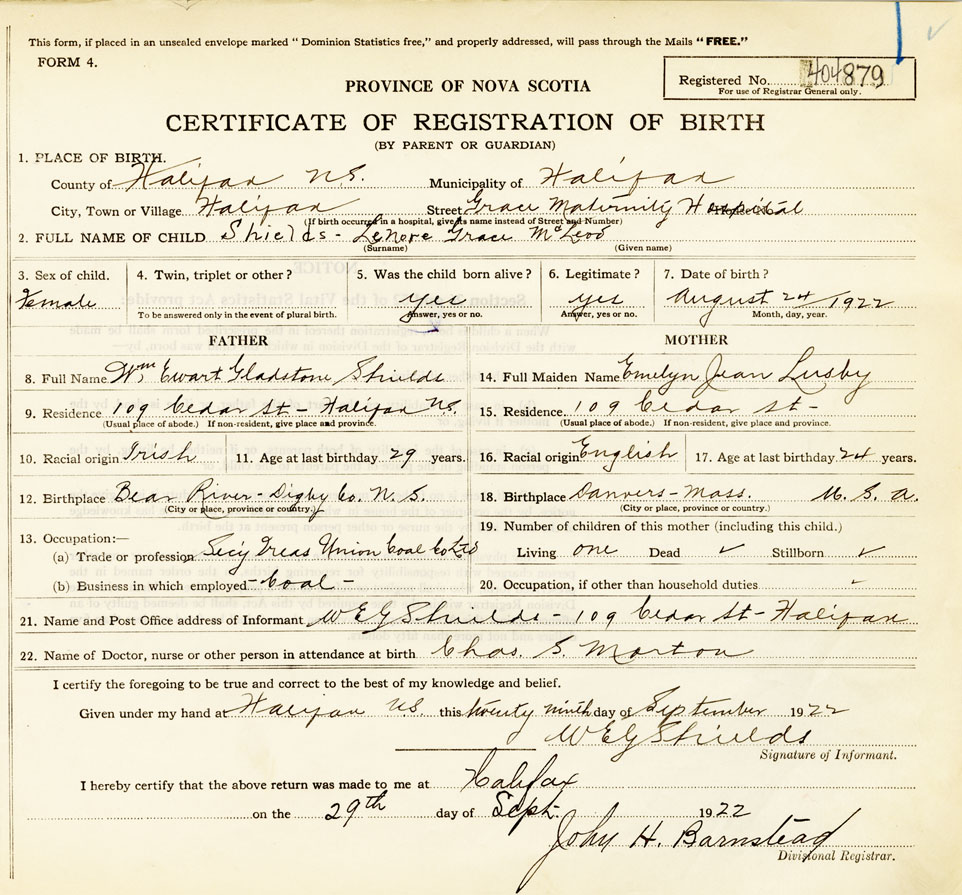 This form, if placed in an unsealed envelope marked " Dominion Statistics free," and properly addressed, will pass through the Mails "FREE."
FORM 4.
Registered No. 404879
For use of Registrar General only.
PROVINCE OF NOVA SCOTIA
CERTIFICATE OF REGISTRATION OF BIRTH
(BY PARENT OR GUARDIAN)
1. PLACE OF BIRTH.
County of Halifax N.S. Municipality of Halifax
City, Town or Village Halifax Street Grace Maternity Hospital
(If birth occurred in a hospital, give its name instead of Street and Number)
2. FULL NAME OF CHILD Shields - LeNore Grace McLeod
(Surname) (Given name)
3. Sex of child. 4. Twin, triplet or other? 5. Was the child born alive? 6. Legitimate? 7. Date of birth?
Female yes yes August 24/1922
To be answered only in the event of plural birth. Answer, yes or no. Answer, yes or no. Month, day, year.
FATHER MOTHER
8. Full Name Wm Ewart Gladstone Shields 14. Full Maiden Name Emelyn Jean Lusby
9. Residence 109 Cedar St - Halifax N.S. 15. Residence 109 Cedar St -
(Usual place of abode.) If non-resident, give place and province. (Usual place of abode.) If non-resident, give place and province.
10. Racial origin Irish 11. Age at last birthday 29 years. 16. Racial origin English 17. Age at last birthday 24 years.
12. Birthplace Bear River - Digby Co. N.S. 18. Birthplace Danvers - Mass. U.S.A.
(City or place, province or country.) (City or place, province or country.)
13. Occupation:— 19. Number of children of this mother (including this child.)
(a) Trade or profession Sec'y Treas Union Coal Co Ltd Living one Dead ✓ Stillborn ✓
(b) Business in which employed - Coal - 20. Occupation, if other than household duties -
21. Name and Post Office address of Informant WEG Shields - 109 Cedar St - Halifax
22. Name of Doctor, nurse or other person in attendance at birth Chas. S. Morton
I certify the foregoing to be true and correct to the best of my knowledge and belief.
Given under my hand at Halifax N.S. this twenty ninth day of September 1922
WEG Shields
Signature of Informant.
I hereby certify that the above return was made to me at Halifax
on the 29th day of Sept. 1922
John H. Barnstead
Divisional Registrar.